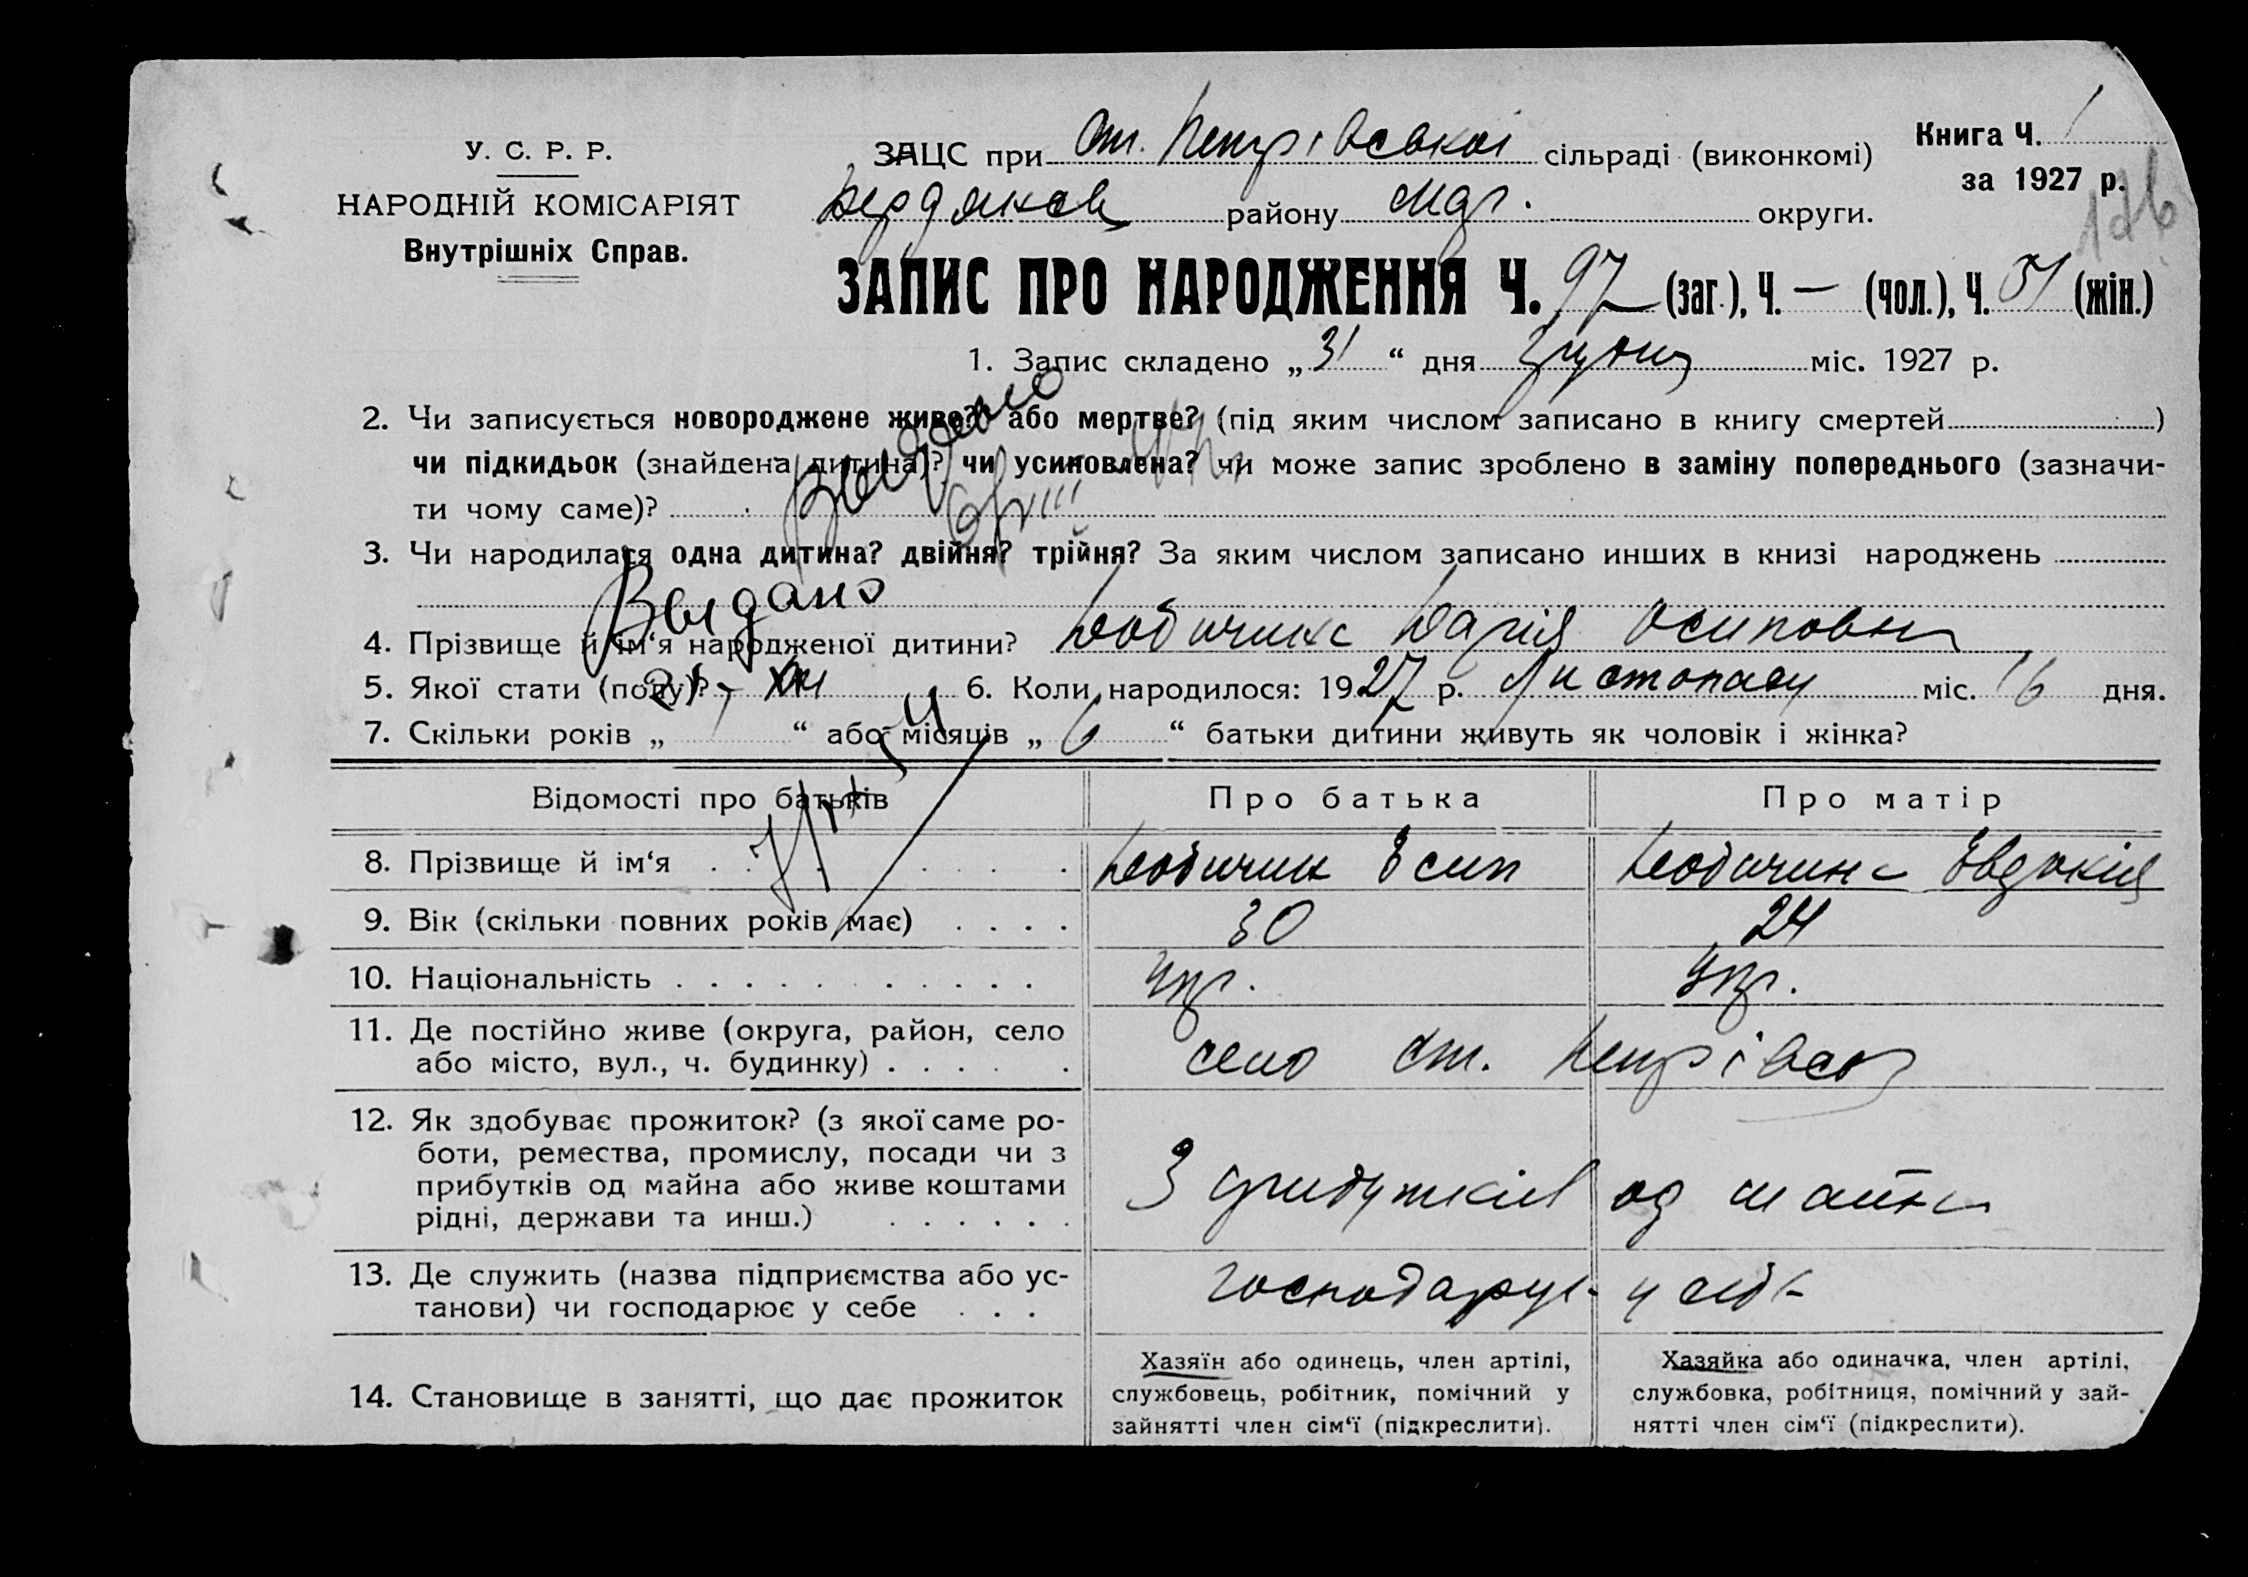 У. С. Р. Р.
НАРОДНІЙ КОМІСАРІЯТ
Внутрішніх Справ.
ЗАЦС при Ст. Петрівської сільраді (виконкомі)
Бердянськ району Мар. округи.
Книга Ч. 1
за 1927 р.
ЗАПИС ПРО НАРОДЖЕННЯ Ч. 97 (заг.), Ч. — (чол.), Ч. 51 (жін.)
1. Запис складено „31“ дня Грудня міс. 1927 р.
2. Чи записується новороджене живе? або мертве? (під яким числом записано в книгу смертей )
чи підкидьок (знайдена дитина)? чи усиновлена? чи може запис зроблено в заміну попереднього (зазначи-
ти чому саме)?
Выдано
3. Чи народилася одна дитина? двійня? трійня? За яким числом записано инших в книзі народжень
Выдано
4. Прізвище й ім‘я народженої дитини? Дария Осиповна
5. Якої стати (полу)? 6. Коли народилося: 1927 р. Листопаду міс. 16 дня.
7. Скільки років „ “ або місяців „ 6 “ батьки дитини живуть як чоловік і жінка?
Відомості про батьків Про батька Про матір
8. Прізвище й ім‘я Осип Евдокия
9. Вік (скільки повних років має) 30 24
10. Національність Укр. Укр.
11. Де постійно живе (округа, район, село
або місто, вул., ч. будинку) село Ст. Петрівск
12. Як здобуває прожиток? (з якої саме ро-
боти, ремества, промислу, посади чи з
прибутків од майна або живе коштами
рідні, держави та инш.) З прибутків од майна
13. Де служить (назва підприємства або ус-
танови) чи господарює у себе господарює у себе
14. Становище в занятті, що дає прожиток
Хазяїн або одинець, член артілі,
службовець, робітник, помічний у
зайнятті член сім‘ї (підкреслити).
Хазяйка або одиначка, член артілі,
службовка, робітниця, помічний у зай-
нятті член сім‘ї (підкреслити).